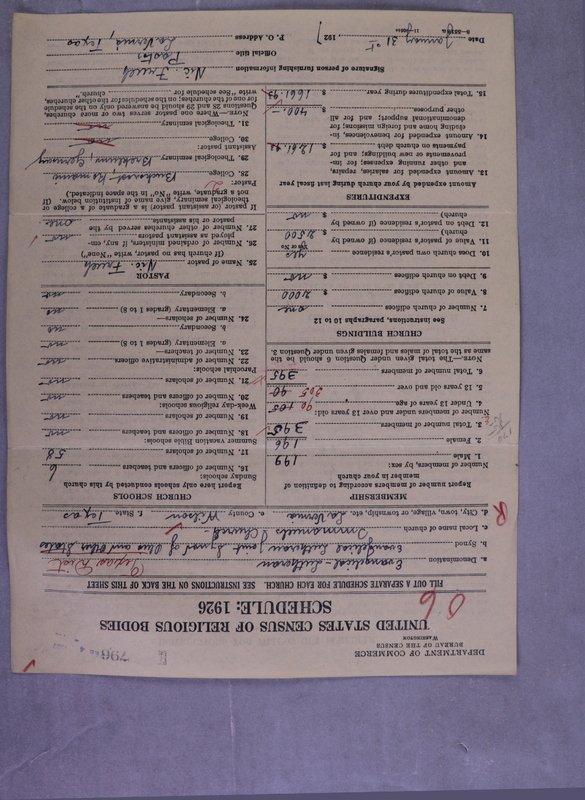 DEPARTMENT OF COMMERCE
BUREAU OF THE CENSUS
WASHINGTON
UNITED STATES CENSUS OF RELIGIOUS BODIES
SCHEDULE: 1926
06
FILL OUT SEPARATE SCHEDULE FOR EACH CHURCH. SEE INSTRUCTIONS ON THE BACK OF THIS SHEET
a. Denomination Evangelical-Lutheran (Texas Dist
b. Synod Evangelical Lutheran Joint Synod of Ohio and Other States
c. Local name of church Immanuel's Church
d. City, town, village, or township, etc. La Vernia e. County Wilson f. State Texas
MEMBERSHIP
Report number of members according to definition of member in your church
Number of members, by sex:
1. Male 199
2. Female 196
3. Total number of members 395
Number of members under and over 13 years old:
4. Under 13 years of age 90
5. 13 years old and over 305
6. Total number of members 395
NOTE.—The total given under Question 6 should be the
same as the total of males and females given under Question 3.
CHURCH BUILDINGS
See instructions, paragraphs 10 to 12
7. Number of church edifices one
8. Value of church edifices $ 21000
9. Debt on church edifices $ no
10. Does church own pastor's residence yes
(Yes or No)
11. Value of pastor's residence (if owned by
church) $ 2500
12. Debt on pastor's residence (if owned by
church) $ no
EXPENDITURES
Amount expended by your church during last fiscal year
13. Amount expended for salaries, repairs,
and other running expenses; for im-
provements or new buildings; and for
payments on church debt $ 1261.92
14. Amount expended for benevolences, in-
cluding home and foreign missions; for
denominational support; and for all
other purposes $ 400.—
15. Total expenditures during year $ 1661.92
CHURCH SCHOOLS
Report here only schools conducted by this church
Sunday schools:
16. Number of officers and teachers 6
17. Number of scholars 58
Summer vacation Bible schools:
18. Number of officers and teachers no
19. Number of scholars no
Week-day religious schools:
20. Number of officers and teachers no
21. Number of scholars no
Parochial schools:
22. Number of administrative officers no
23. Number of teachers—
a. Elementary (grades 1 to 8) no
b. Secondary no
24. Number of scholars—
a. Elementary (grades 1 to 8) no
b. Secondary no
PASTOR
25. Name of pastor Nic. Frueh
(If church has no pastor, write "None")
26. Number of ordained ministers, if any, em-
ployed as assistant pastors no
27. Number of other churches served by the
pastor or his assistants one
If pastor (or assistant pastor) is a graduate of a college or
theological seminary, give name of institution below. (If
not a graduate, write "No" in the space indicated.)
Pastor:
28. College Bucharest, Romania
29. Theological seminary Breklum, Germany
Assistant pastor:
30. College no
31. Theological seminary no
NOTE.—Where one pastor serves two or more churches,
Questions 28 and 29 should be answered only on the schedule
for one of the churches; on the schedules for the other churches,
write "See schedule for church."
Signature of person furnishing information Nic. Frueh
Official title Pastor
P. O. Address La Vernia, Texas
Date January 31st, 1927